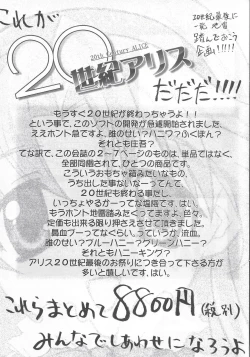 これが
20世紀最後に
一発 地雷
踏んでみよう
企画!!!!!
20th century ALICE
20世紀アリス
だだだ!!!!
もうすぐ20世紀が終わっちゃうよ！！
という事で、このソフトの開発が急遽開始されました、
ええホント急ですよ、誰のせい？ハニワ？ふくぽん？
それとも圧吾？
てな訳で、この会誌の2～7ページのものは、単品ではなく、
全部同梱されて、ひとつの商品です。
こういうおもちゃ箱みたいなもの、
うち出した事ないなーってんで、
20世紀も終わる事だし、
いっちょやるかーってな塩梅です、はい。
もうホント地雷踏みたくってますよ、色々。
定価も出来る限り押さえさせて頂きました。
鼻血ブーってなくらい。っていうか、流血。
誰のせい？ブルーハニー？グリーンハニー？
それともハニーキング？
アリス20世紀最後のお祭りにつき合って下さる方が
多いと嬉しいです、はい。
これらまとめて8800円(税別)
みんなでしあわせになろうよ